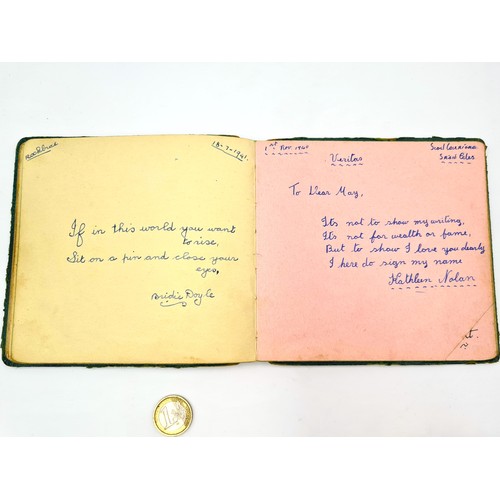 18-7-1941.
If in this world you want
to rise,
Sit on a pin and close your
eyes,
Bridie Doyle
1st Nov 1941
Veritas
To Dear May,
Its not to show my writing,
Its not for wealth or fame,
But to show I love you dearly
I here do sign my name
Kathleen Nolan